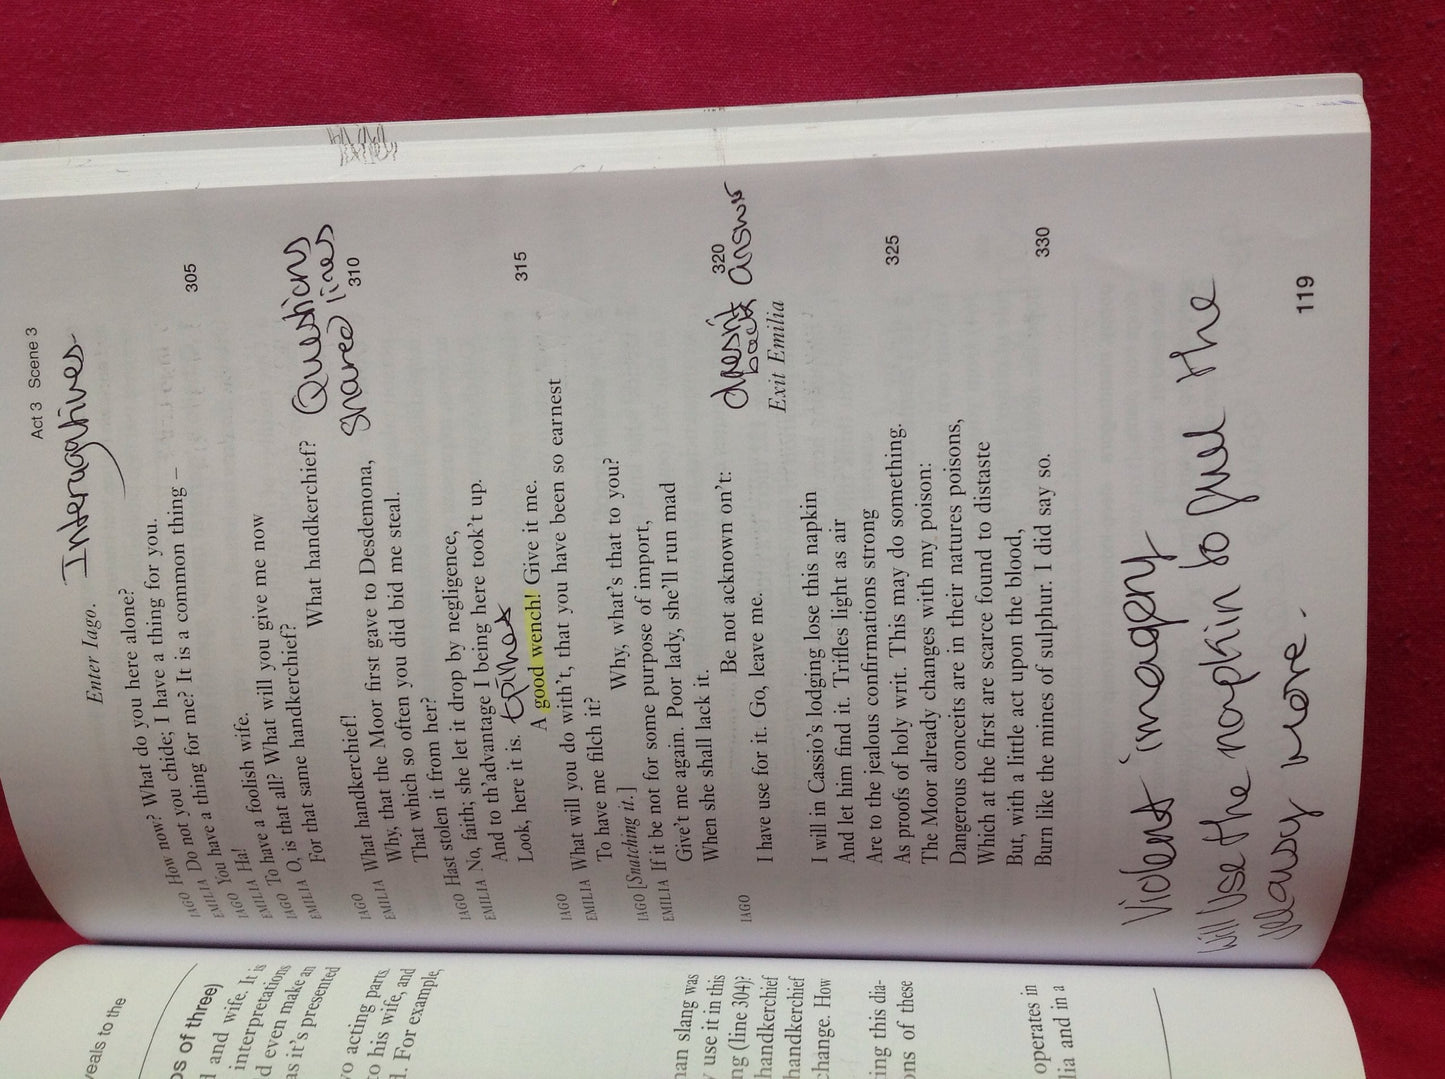 Act 3 Scene 3
Interagatives.
Enter Iago.
IAGO How now? What do you here alone?
EMILIA Do not you chide; I have a thing for you.
IAGO You have a thing for me? It is a common thing –
EMILIA Ha! 305
IAGO To have a foolish wife.
EMILIA O, is that all? What will you give me now
For that same handkerchief?
IAGO What handkerchief? Questions
Shared lines
EMILIA What handkerchief! 310
Why, that the Moor first gave to Desdemona,
That which so often you did bid me steal.
IAGO Hast stolen it from her?
EMILIA No, faith; she let it drop by negligence,
And to th'advantage I being here took't up. 315
Look, here it is.
IAGO A good wench! Give it me.
EMILIA What will you do with't, that you have been so earnest
To have me filch it?
IAGO [Snatching it.] Why, what's that to you?
EMILIA If it be not for some purpose of import,
Give't me again. Poor lady, she'll run mad 320
When she shall lack it.
doesn't
back answer
IAGO Be not acknown on't:
I have use for it. Go, leave me. Exit Emilia
I will in Cassio's lodging lose this napkin
And let him find it. Trifles light as air
Are to the jealous confirmations strong 325
As proofs of holy writ. This may do something.
The Moor already changes with my poison:
Dangerous conceits are in their natures poisons,
Which at the first are scarce found to distaste
But, with a little act upon the blood, 330
Burn like the mines of sulphur. I did say so.
Violent imagery
will use the napkin to fuel the
more.
119
veals to the
ps of three)
and wife. It is
interpretations
d even make an
as it's presented
vo acting parts.
to his wife, and
d. For example,
man slang was
y use it in this
ng (line 304)?
handkerchief
handkerchief
change. How
ting this dia-
ons of these
operates in
lia and in a